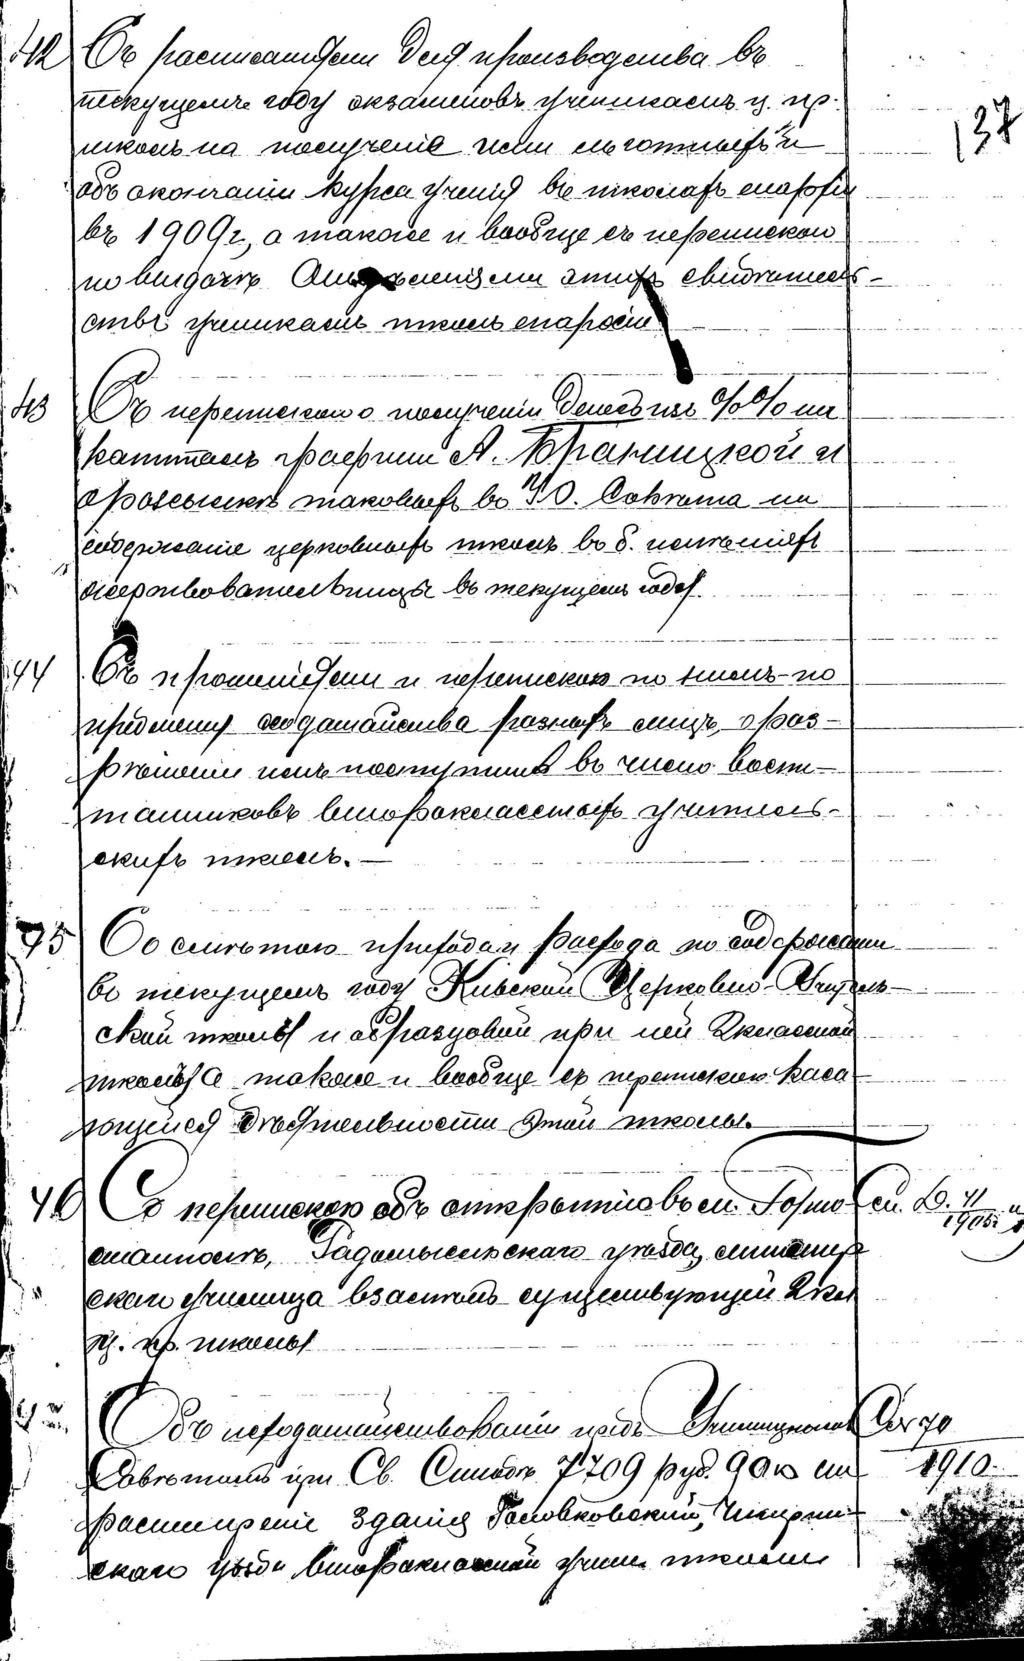 42 Съ расписаніями для производства въ
текущемъ году экзаменовъ ученикамъ ц. пр.
школъ на полученіе ими льготныхъ и
объ окончаніи курса ученія въ школахъ епархіи
въ 1909 г., а также и вообще съ перепискою
по выдачѣ Отдѣленіями этихъ свидѣтель-
ствъ ученикамъ школъ епархіи
137
43 Съ перепискою о полученіи денегъ изъ %% на
капиталъ графини А. Браницкой и
о разсылкѣ таковыхъ въ У. О. Совѣта на
содержаніе церковныхъ школъ въ б. имѣніяхъ
жертвовательницы въ текущемъ году
44 Съ прошеніями и перепискою по нимъ по
предмету ходатайства разныхъ лицъ, о раз-
рѣшеніи имъ поступить въ число воспи-
танниковъ второклассныхъ учитель-
скихъ школъ. —
45 Со смѣтою прихода и расхода по содержанію
въ текущемъ году Кіевской Церковно-Учитель-
ской школы и образцовой при ней 2классной
школы, а также и вообще съ перепискою каса-
ющейся дѣятельности этой школы.
46 Съ перепискою объ открытіи въ м. Горно-
стайполѣ, Радомысльскаго уѣзда, министер-
скаго училища взамѣнъ существующей 2кл
ц. пр. школы
см. д. 41
190
Объ исходатайствованіи предъ Училищнымъ
Совѣтомъ при Св. Синодѣ 7709 руб. 90 к на
расширеніе зданія Головковской, Чигирин-
скаго уѣзда второклассной учит. школы
70
1910.